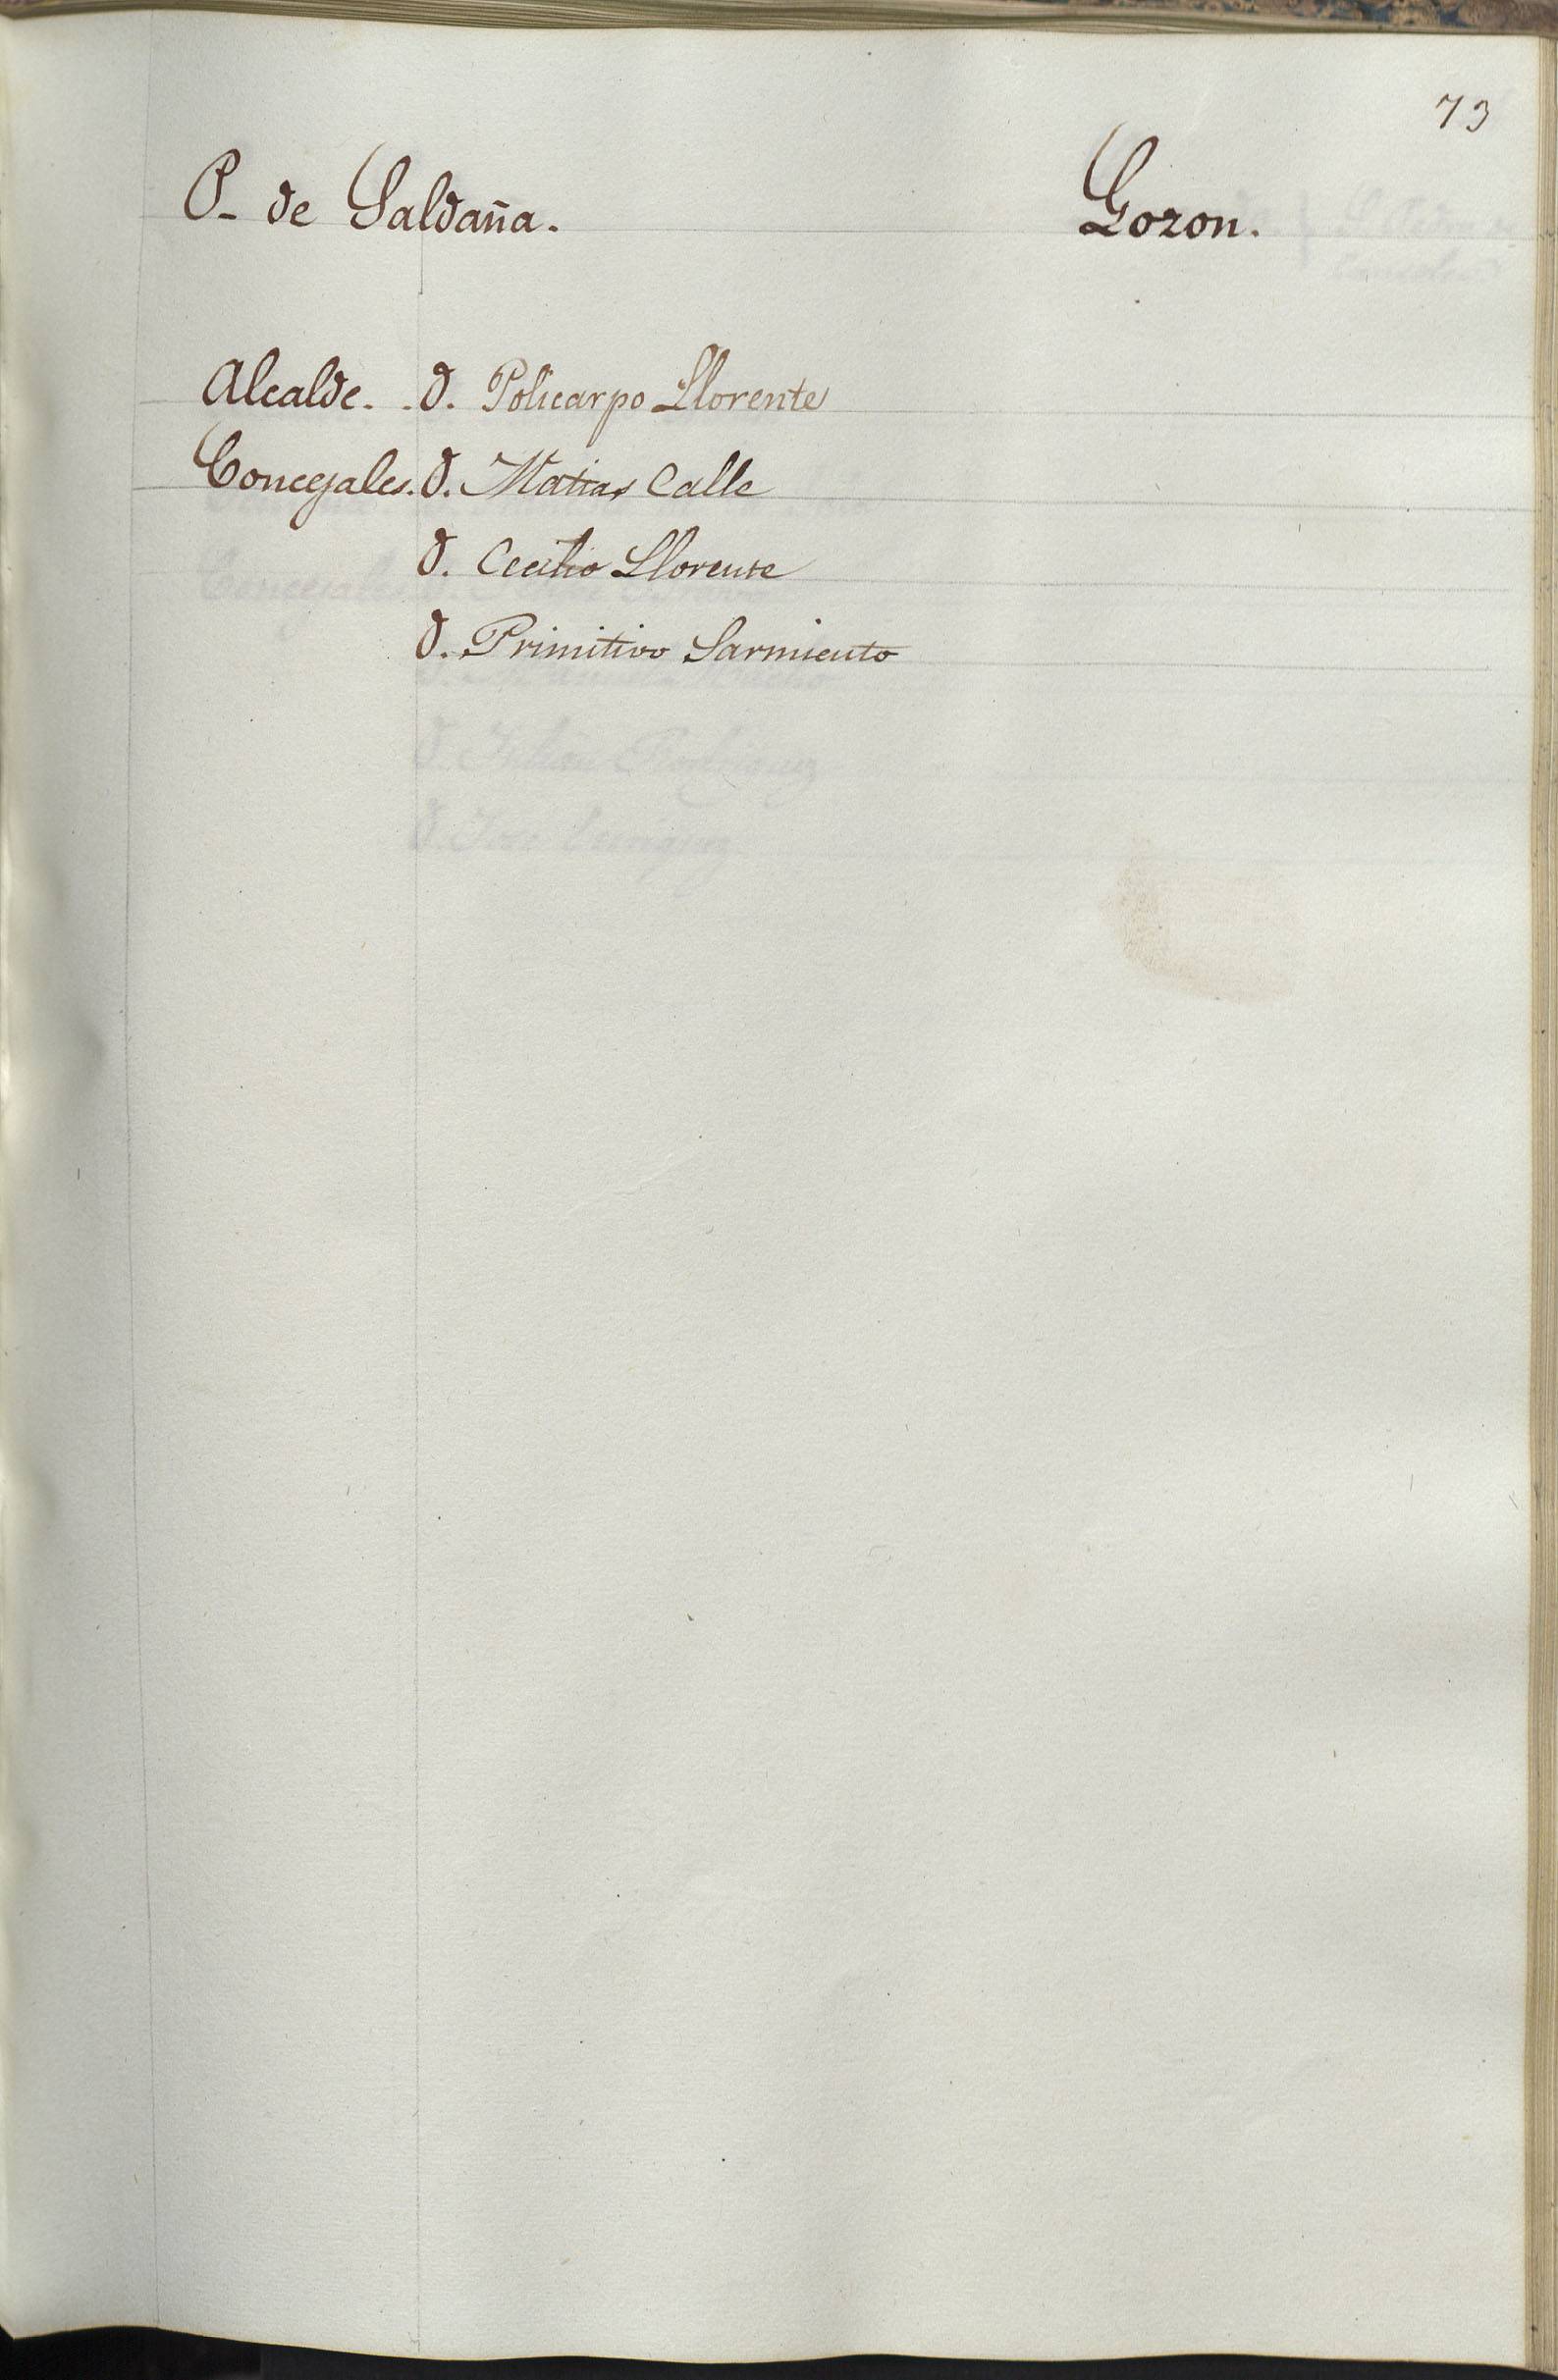 73
P. de Saldaña. Gozon.
Alcalde. . D. Policarpo Llorente
Concejales. D. Matias Calle
D. Cecilio Llorente
D. Primitivo Sarmiento